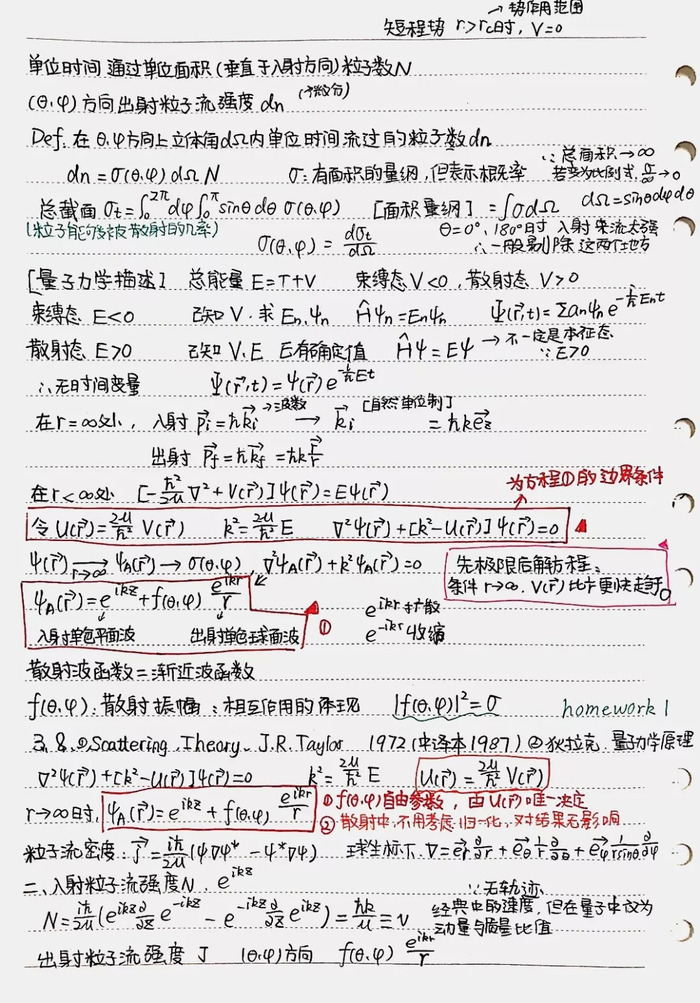 → 势作用范围
短程势 r>rc时, V=0
单位时间 通过单位面积(垂直于入射方向)粒子数N
(θ,φ)方向出射粒子流强度dn (微分)
Def. 在θ,φ方向上立体角dΩ内单位时间流过的粒子数dn
dn=σ(θ,φ)dΩN σ:有面积的量纲,但表示概率 ∵总面积→∞ 若变为比例式, σ/∞→0
总截面 σt=∫₀^2π dφ∫₀^π sinθdθ σ(θ,φ) [面积量纲] =∫σdΩ dΩ=sinθdφdθ
(粒子能够被散射的几率) σ(θ,φ)=dσt/dΩ θ=0°,180°时 入射束流太强 ∴一般剔除这两个地方
[量子力学描述] 总能量E=T+V 束缚态V<0,散射态V>0
束缚态 E<0 已知V.求En,ψn Ĥψn=Enψn Ψ(r⃗,t)=Σanψn e^{-i/ħ Ent}
散射态 E>0 已知V、E E有确定值 Ĥψ=Eψ → 不一定是本征态 ∵E>0
∴无时间变量 Ψ(r⃗,t)=ψ(r⃗)e^{-i/ħ Et}
在r=∞处, 入射 p⃗i=ħk⃗i →波数 → k⃗i [自然单位制] =ħke⃗z
出射 p⃗f=ħk⃗f=ħk r⃗/r
在r<∞处 [-ħ²/2μ ∇²+V(r⃗)]ψ(r⃗)=Eψ(r⃗) 为方程①的边界条件
令U(r⃗)=2μ/ħ² V(r⃗) k²=2μ/ħ² E ∇²ψ(r⃗)+[k²-U(r⃗)]ψ(r⃗)=0
ψ(r⃗) →(r→∞) ψA(r⃗)→σ(θ,φ), ∇²ψA(r⃗)+k²ψA(r⃗)=0 先极限后解方程:
条件 r→∞, V(r⃗)比1/r更快趋于0
ψA(r⃗)=e^{ikz}+f(θ,φ) e^{ikr}/r e^{ikr}扩散
入射单色平面波 出射单色球面波 ① e^{-ikr}收缩
散射波函数=渐近波函数
f(θ,φ):散射振幅:相互作用的体现 |f(θ,φ)|²=σ homework 1
①Scattering Theory. J.R.Taylor 1972(中译本1987) ②狄拉克 量子力学原理
∇²ψ(r⃗)+[k²-U(r⃗)]ψ(r⃗)=0 k²=2μ/ħ² E U(r⃗)=2μ/ħ² V(r⃗)
r→∞时, ψA(r⃗)=e^{ikz}+f(θ,φ) e^{ikr}/r ①f(θ,φ)自由参数,由U(r⃗)唯一决定
②散射中,不用考虑归一化,对结果无影响
粒子流密度: J⃗=iħ/2μ(ψ∇ψ*-ψ*∇ψ) 球坐标下 ∇=e⃗r ∂/∂r+e⃗θ 1/r ∂/∂θ+e⃗φ 1/rsinθ ∂/∂φ
二、入射粒子流强度N, e^{ikz} ∵无轨迹
N=iħ/2μ(e^{ikz} ∂/∂z e^{-ikz}-e^{-ikz} ∂/∂z e^{ikz})=ħk/μ≡v 经典中的速度,但在量子中仅为
动量与质量比值
出射粒子流强度 J (θ,φ)方向 f(θ,φ) e^{ikr}/r